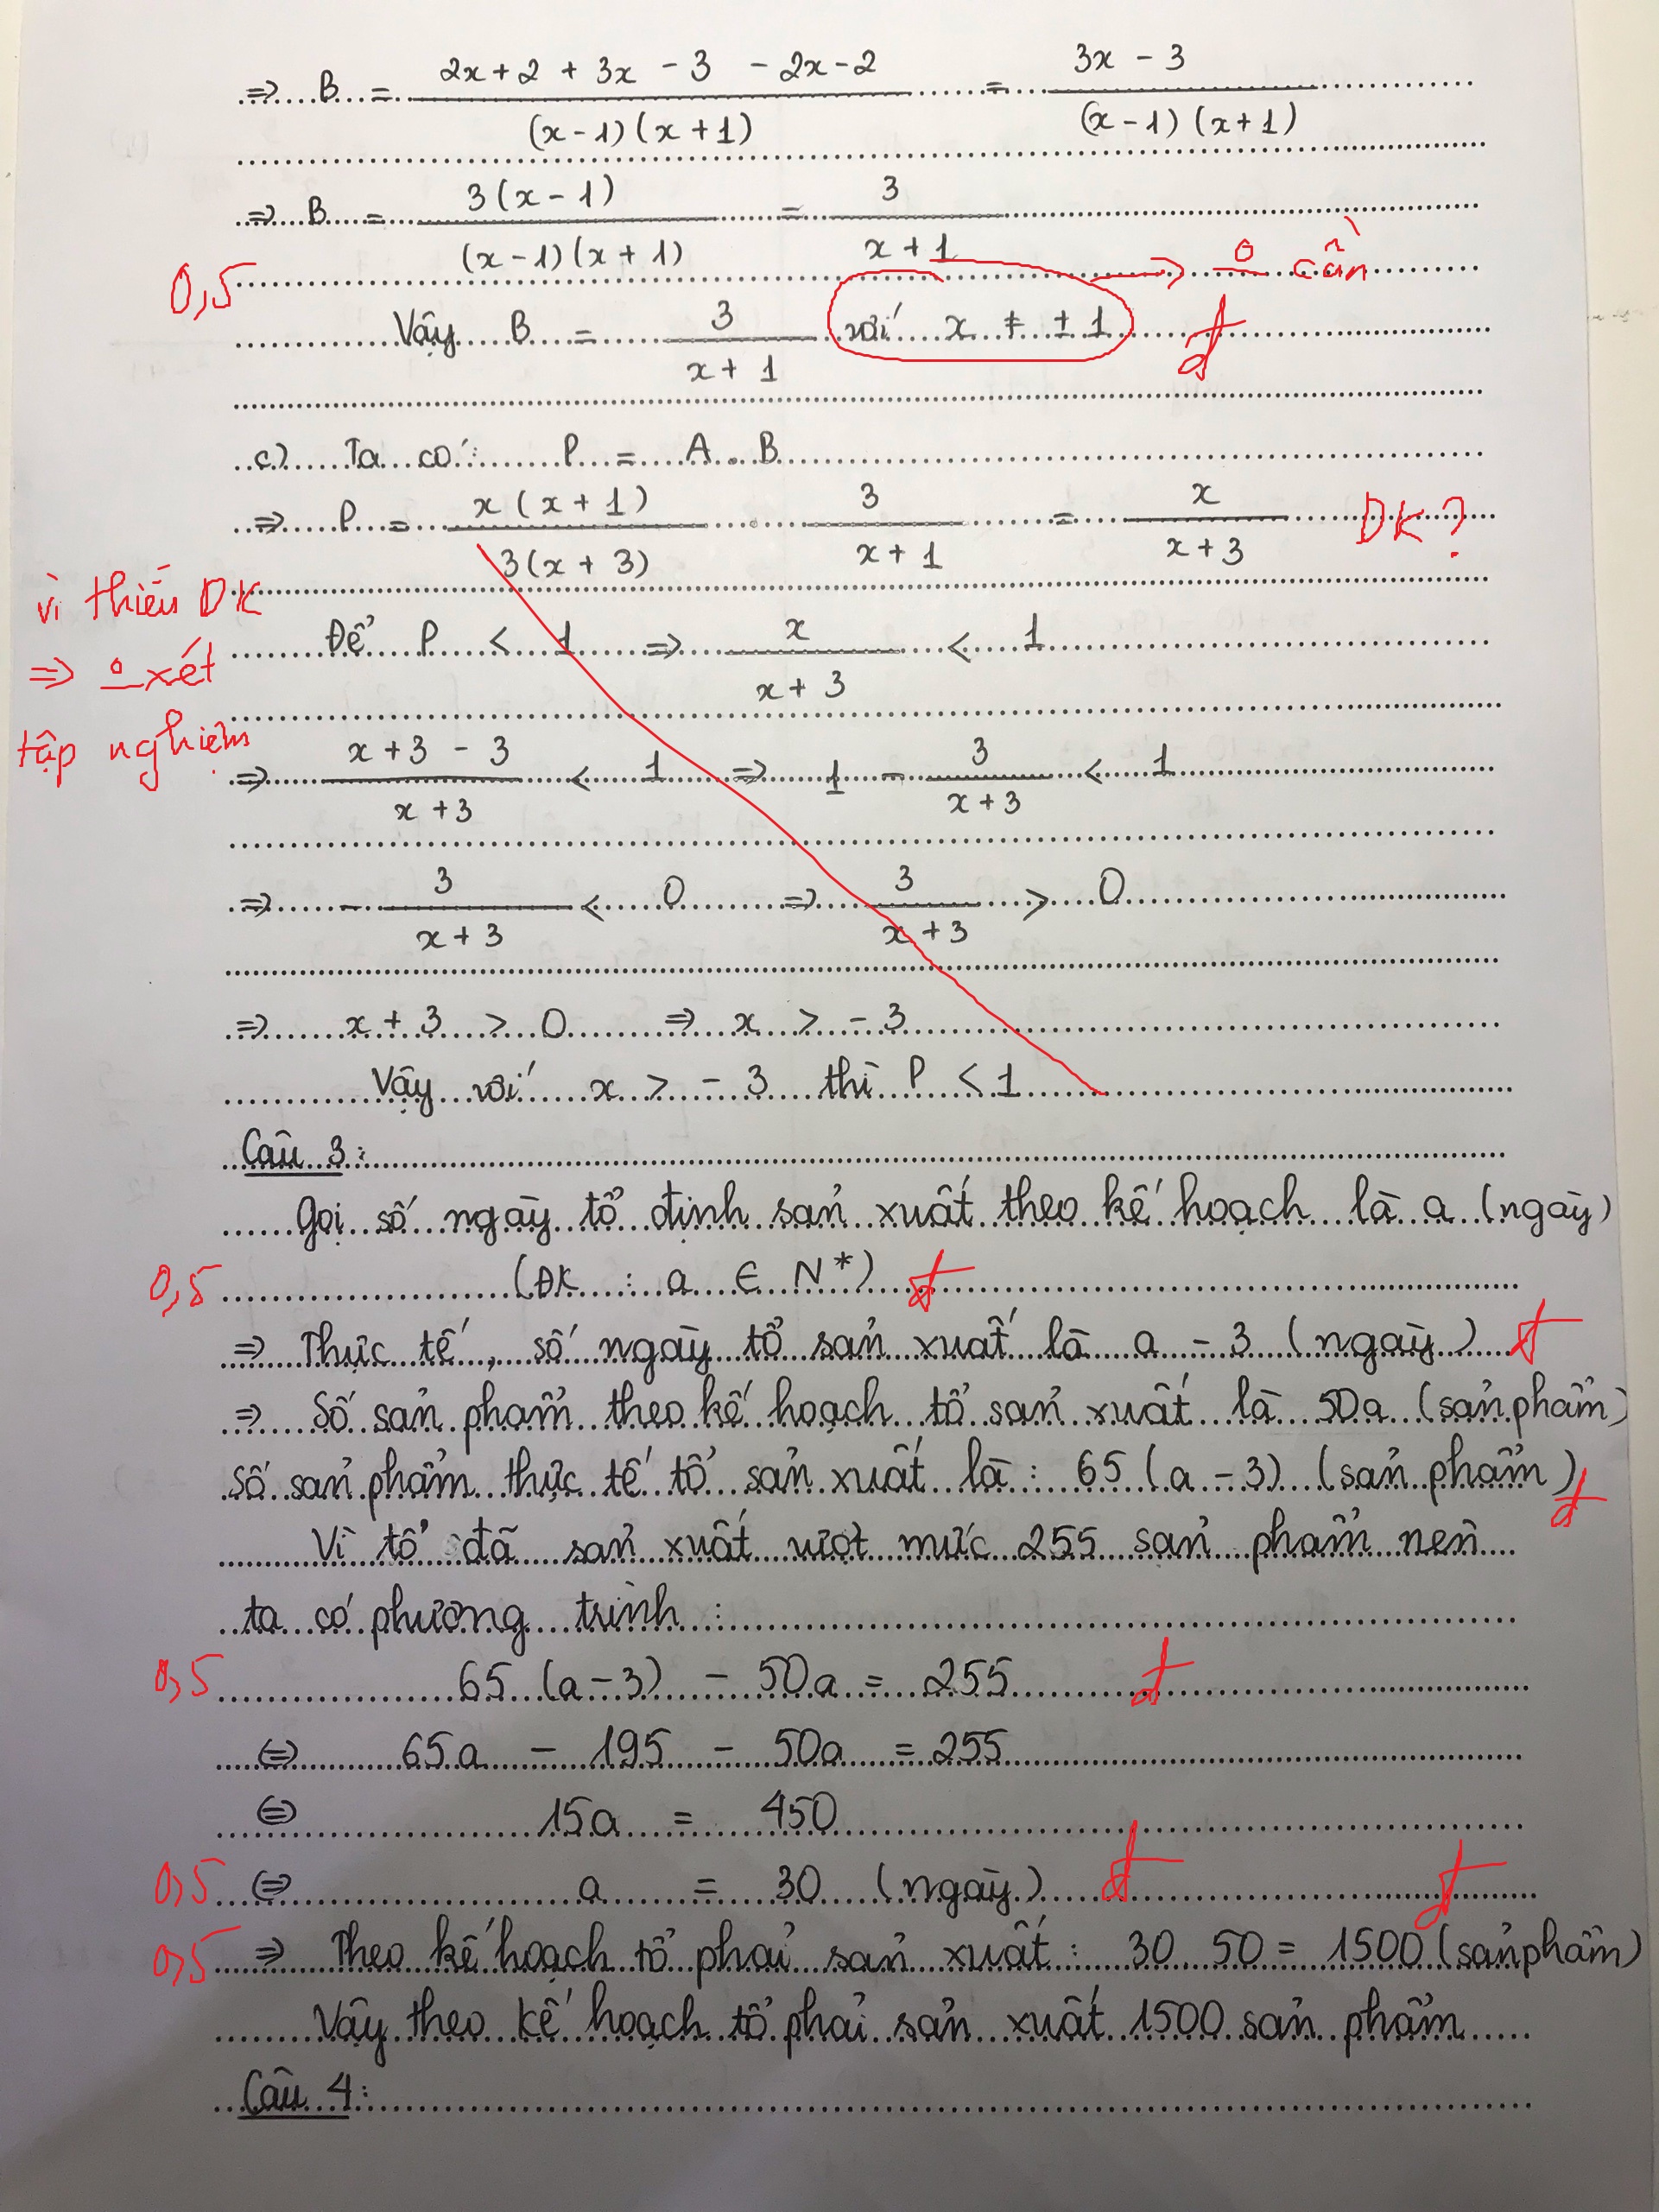 ⇒ B = (2x+2 + 3x - 3 - 2x-2)/((x-1)(x+1)) = (3x - 3)/((x-1)(x+1))
⇒ B = (3(x-1))/((x-1)(x+1)) = 3/(x+1)
0,5
o cần
Vậy B = 3/(x+1) với x ≠ ±1 đ
c) Ta có: P = A . B
⇒ P = (x(x+1))/(3(x+3)) . 3/(x+1) = x/(x+3) ĐK?
vì thiếu ĐK
⇒ o xét
tập nghiệm
Để P < 1 ⇒ x/(x+3) < 1
⇒ (x+3-3)/(x+3) < 1 ⇒ 1 - 3/(x+3) < 1
⇒ - 3/(x+3) < 0 ⇒ 3/(x+3) > 0
⇒ x + 3 > 0 ⇒ x > -3
Vậy với x > -3 thì P < 1
Câu 3:
Gọi số ngày tổ định sản xuất theo kế hoạch là a (ngày)
0,5 (ĐK : a ∈ N*) đ
⇒ Thực tế, số ngày tổ sản xuất là a - 3 (ngày) đ
⇒ Số sản phẩm theo kế hoạch tổ sản xuất là 50a (sản phẩm)
Số sản phẩm thực tế tổ sản xuất là : 65 (a - 3) (sản phẩm) đ
Vì tổ đã sản xuất vượt mức 255 sản phẩm nên
ta có phương trình :
0,5 65 (a-3) - 50a = 255 đ
⇔ 65a - 195 - 50a = 255
⇔ 15a = 450
0,5 ⇔ a = 30 (ngày) đ đ
0,5 ⇒ Theo kế hoạch tổ phải sản xuất : 30 . 50 = 1500 (sản phẩm)
Vậy theo kế hoạch tổ phải sản xuất 1500 sản phẩm
Câu 4: